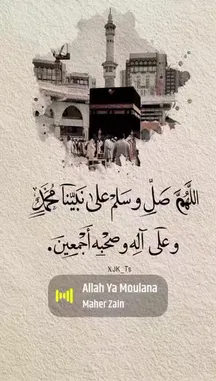 اللَّهُمَّ صَلِّ وسَلِّمْ على نَبِيِّنَا مُحَمَّدٍ
وعلى آلِهِ وصَحْبِهِ أَجْمَعِينَ.
XJK_Ts
Allah Ya Moulana
Maher Zain